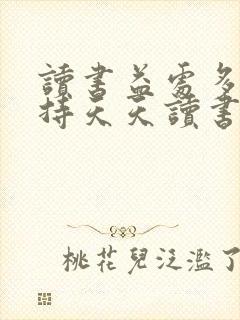 讀書益處多
持天天讀書
桃花兒泛濫了